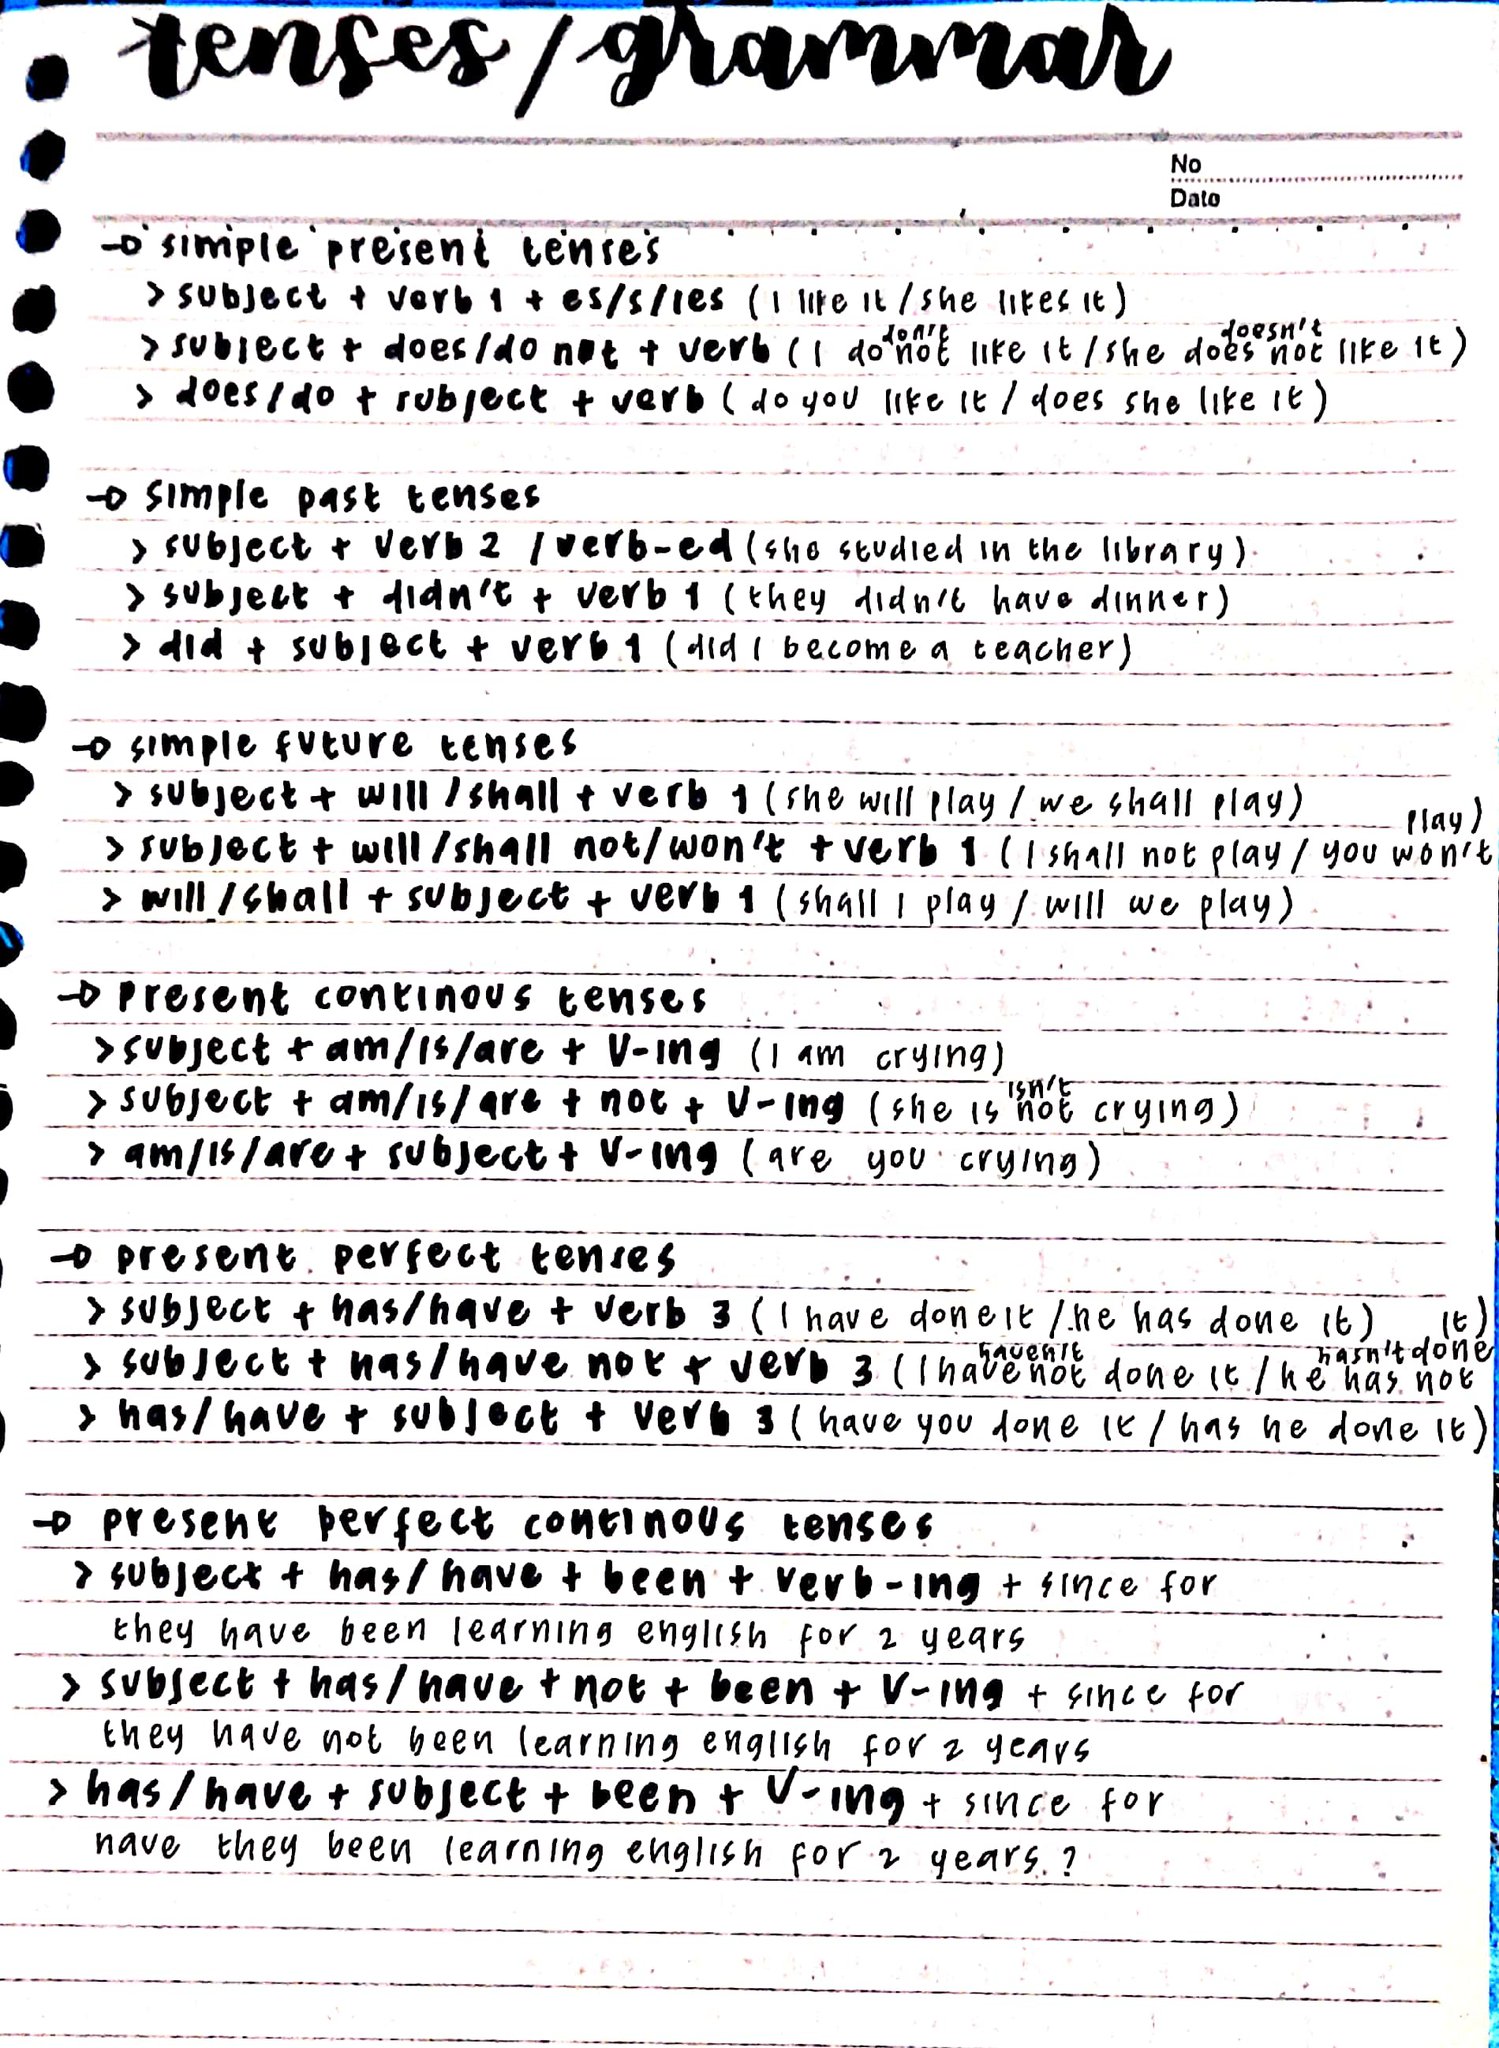 tenses/grammar
No
Date
→ simple present tenses
> subject + verb 1 + es/s/ies (I like it/she likes it)
don't doesn't
> subject + does/do not + verb (I do not like it/she does not like it)
> does/do + subject + verb (do you like it/does she like it)
→ simple past tenses
> subject + verb 2 /verb-ed (she studied in the library)
> subject + didn't + verb 1 (they didn't have dinner)
> did + subject + verb 1 (did I become a teacher)
→ simple future tenses
> subject + will/shall + verb 1 (she will play/we shall play)
play)
> subject + will/shall not/won't + verb 1 (I shall not play/you won't
> will/shall + subject + verb 1 (shall I play/will we play)
→ present continous tenses
> subject + am/is/are + V-ing (I am crying)
isn't
> subject + am/is/are + not + V-ing (she is not crying)
> am/is/are + subject + V-ing (are you crying)
→ present perfect tenses
> subject + has/have + verb 3 (I have done it/he has done it)
it)
haven't hasn't done
> subject + has/have not + verb 3 (I have not done it/he has not
> has/have + subject + verb 3 (have you done it/has he done it)
→ present perfect continous tenses
> subject + has/have + been + verb-ing + since for
they have been learning english for 2 years
> subject + has/have + not + been + V-ing + since for
they have not been learning english for 2 years
> has/have + subject + been + V-ing + since for
have they been learning english for 2 years ?